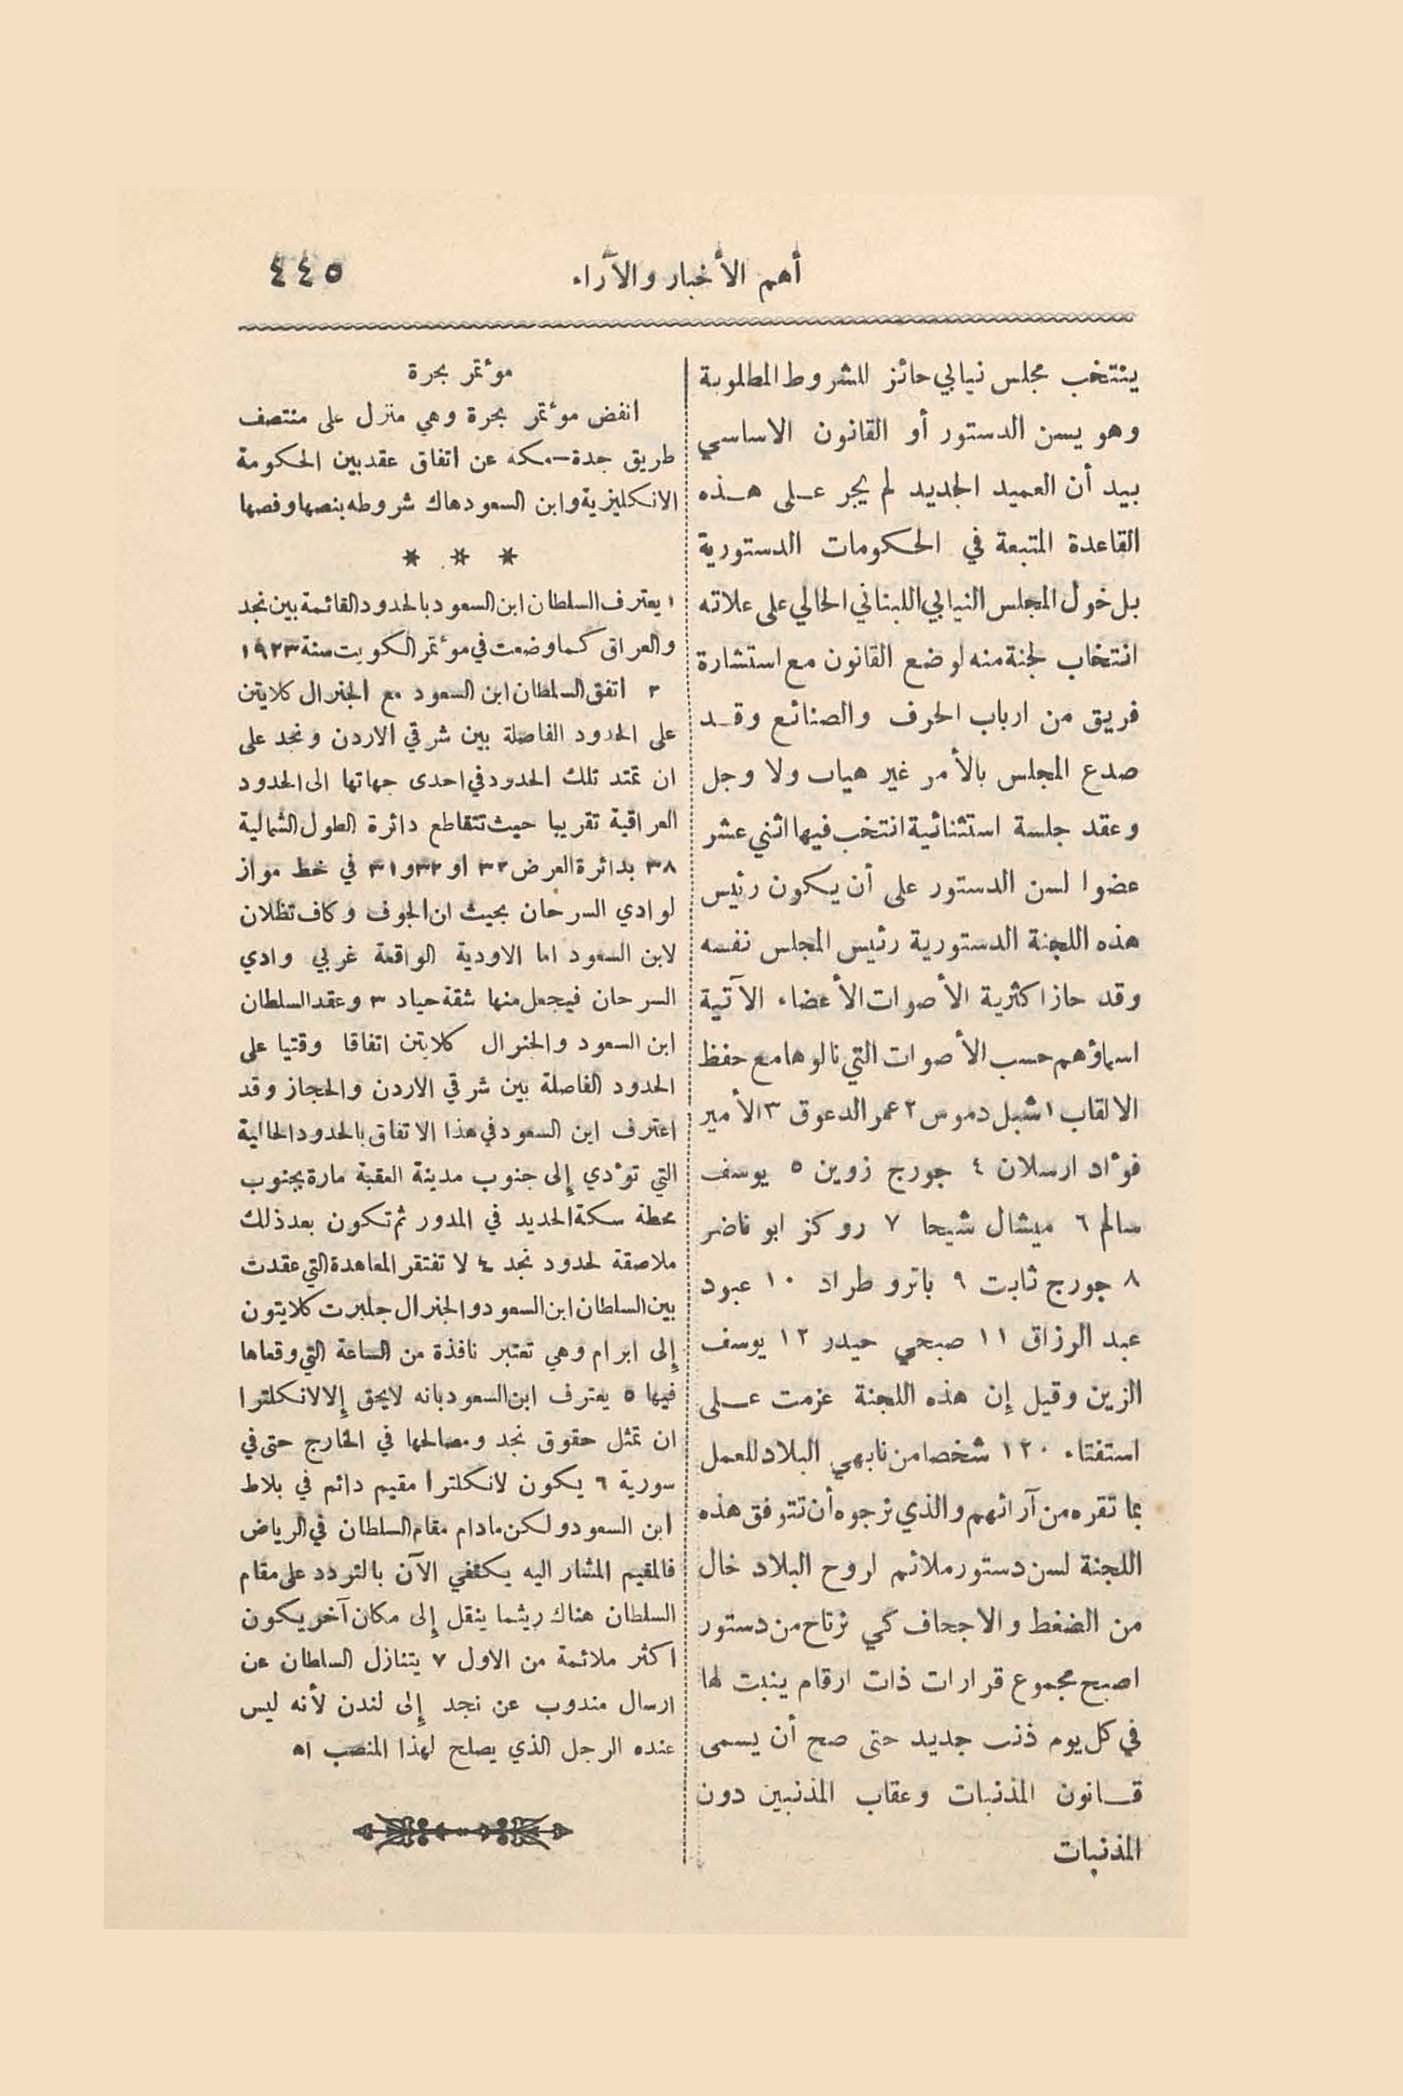 أهم الأخبار والآراء
٤٤٥
ينتخب مجلس نيابي حائز للشروط المطلوبة
وهو يسن الدستور أو القانون الاساسي
بيد أن العميد الجديد لم يجر عـلى هـذه
القاعدة المتبعة في الحكومات الدستورية
بل خول المجلس النيابي اللبناني الحالي على علاته
انتخاب لجنة منه لوضع القانون مع استشارة
فريق من ارباب الحرف والصنائع وقـد
صدع المجلس بالأمر غير هياب ولا وجل
وعقد جلسة استثنائية انتخب فيها اثني عشر
عضوا لسن الدستور على أن يكون رئيس
هذه اللجنة الدستورية رئيس المجلس نفسه
وقد حاز اكثرية الأصوات الأعضاء الآتية
اسماؤهم حسب الأصوات التي نالوها مع حفظ
الالقاب ١ شبل دموس ٢ عمر الدعوق ٣ الأمير
فؤاد ارسلان ٤ جورج زوين ٥ يوسف
سالم ٦ ميشال شيحا ٧ روكز ابو ناضر
٨ جورج ثابت ٩ باترو طراد ١٠ عبود
عبد الرزاق ١١ صبحي حيدر ١٢ يوسف
الزين وقيل إن هذه اللجنة عزمت عـلى
استفتاء ١٢٠ شخصا من نابهي البلاد للعمل
بما تقره من آرائهم والذي نرجوه أن تتوفق هذه
اللجنة لسن دستور ملائم لروح البلاد خال
من الضغط والاجحاف كي نرتاح من دستور
اصبح مجموع قرارات ذات ارقام ينبت لها
في كل يوم ذنب جديد حتى صح أن يسمى
قـانون المذنبات وعقاب المذنبين دون
المذنبات
مؤتمر بحرة
انفض مؤتمر بحرة وهي منزل على منتصف
طريق جدة–مكة عن اتفاق عقد بين الحكومة
الانكليزية وابن السعود هاك شروطه بنصها وفصها
* * *
١ يعترف السلطان ابن السعود بالحدود القائمة بين نجد
والعراق كما وضعت في مؤتمر الكويت سنة ١٩٢٣
٢ اتفق السلطان ابن السعود مع الجنرال كلايتن
على الحدود الفاصلة بين شرقي الاردن ونجد على
ان تمتد تلك الحدود في احدى جهاتها الى الحدود
العراقية تقريبا حيث تتقاطع دائرة الطول الشمالية
٣٨ بدائرة العرض ٣٢ او ٣٢ و٣١ في خط مواز
لوادي السرحان بحيث ان الجوف وكاف تظلان
لابن السعود اما الاودية الواقعة غربي وادي
السرحان فيجعل منها شقة حياد ٣ وعقد السلطان
ابن السعود والجنرال كلايتن اتفاقا وقتيا على
الحدود الفاصلة بين شرقي الاردن والحجاز وقد
اعترف ابن السعود في هذا الاتفاق بالحدود الحالية
التي تؤدي إلى جنوب مدينة العقبة مارة بجنوب
محطة سكة الحديد في المدور ثم تكون بعد ذلك
ملاصقة لحدود نجد ٤ لا تفتقر المعاهدة التي عقدت
بين السلطان ابن السعود والجنرال جلبرت كلايتون
إلى ابرام وهي تعتبر نافذة من الساعة التي وقعاها
فيها ٥ يعترف ابن السعود بانه لا يحق إلا لانكلترا
ان تمثل حقوق نجد ومصالحها في الخارج حتى في
سورية ٦ يكون لانكلترا مقيم دائم في بلاط
ابن السعود ولكن ما دام مقام السلطان في الرياض
فالمقيم المشار اليه يكتفي الآن بالتردد على مقام
السلطان هناك ريثما ينقل إلى مكان آخر يكون
اكثر ملائمة من الاول ٧ يتنازل السلطان عن
ارسال مندوب عن نجد إلى لندن لأنه ليس
عنده الرجل الذي يصلح لهذا المنصب اه